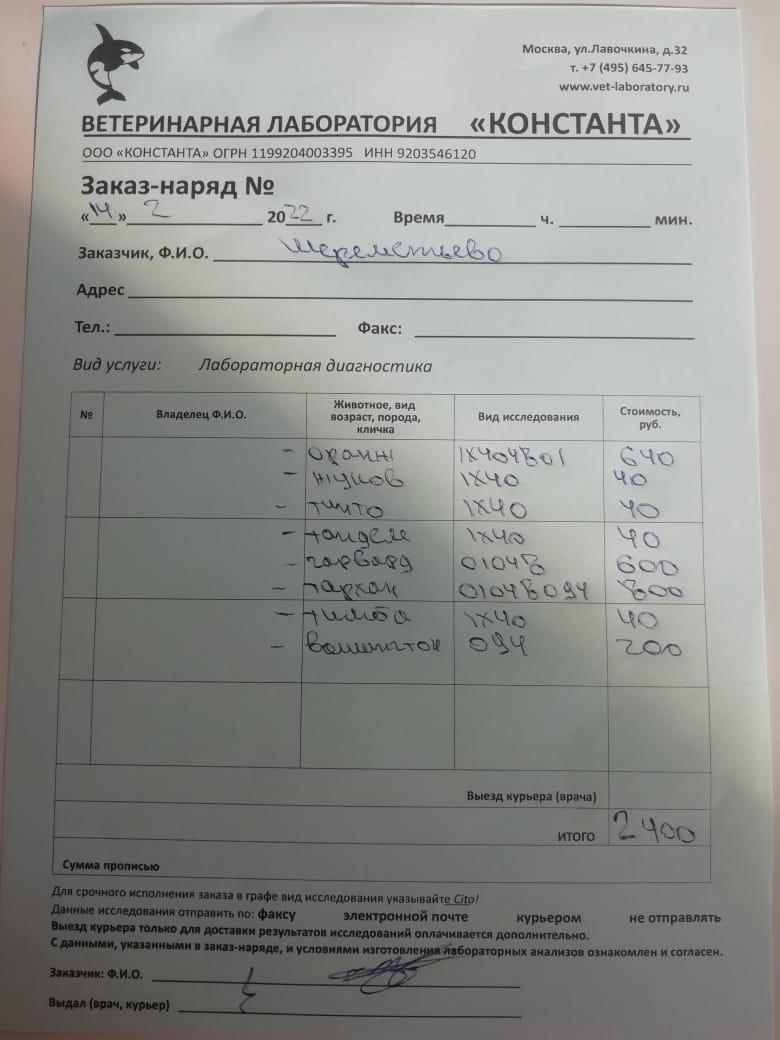 Москва, ул.Лавочкина, д.32
т. +7 (495) 645-77-93
www.vet-laboratory.ru
ВЕТЕРИНАРНАЯ ЛАБОРАТОРИЯ «КОНСТАНТА»
ООО «КОНСТАНТА» ОГРН 1199204003395 ИНН 9203546120
Заказ-наряд №
«14» 2 2022 г. Время ч. мин.
Заказчик, Ф.И.О. Шереметьево
Адрес
Тел.: Факс:
Вид услуги: Лабораторная диагностика
№ Владелец Ф.И.О. Животное, вид возраст, порода, кличка Вид исследования Стоимость, руб.
- 1х40 640
- жуков 1х40 40
- тинто 1х40 40
- 1х40 40
- гарвард 600
- тархан 800
- 1х40 40
- вашингтон 094 200
Выезд курьера (врача)
ИТОГО 2400
Сумма прописью
Для срочного исполнения заказа в графе вид исследования указывайте Cito!
Данные исследования отправить по: факсу электронной почте курьером не отправлять
Выезд курьера только для доставки результатов исследований оплачивается дополнительно.
С данными, указанными в заказ-наряде, и условиями изготовления лабораторных анализов ознакомлен и согласен.
Заказчик: Ф.И.О.
Выдал (врач, курьер)